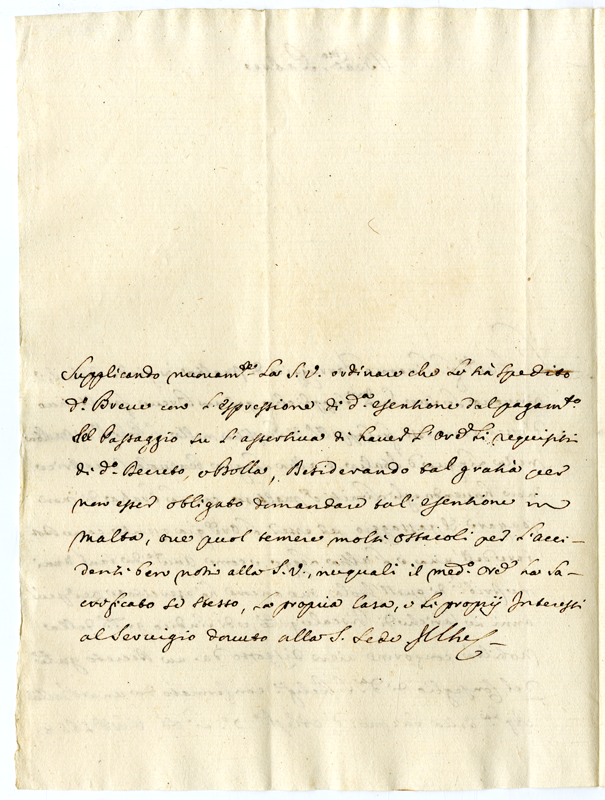 Supplicando nuouam.te La S. V. ordinare che Le sia spedito
d.o Breue con L'espressione di d.a esentione dal pagam.to
del Passaggio su L'assertiua di hauer L'Ore Li requisiti
di d.o Decreto, o Bolla, Desiderando tal gratia per
non esser obligato domandare tal esentione in
Malta, oue puol temere molti ostacoli per L'acci-
denti ben noti alla S. V., ne quali il med.o Ore ha sa-
crificato se stesso, La propria Casa, e Li proprij Interessi
al Seruigio douuto alla S. Sede